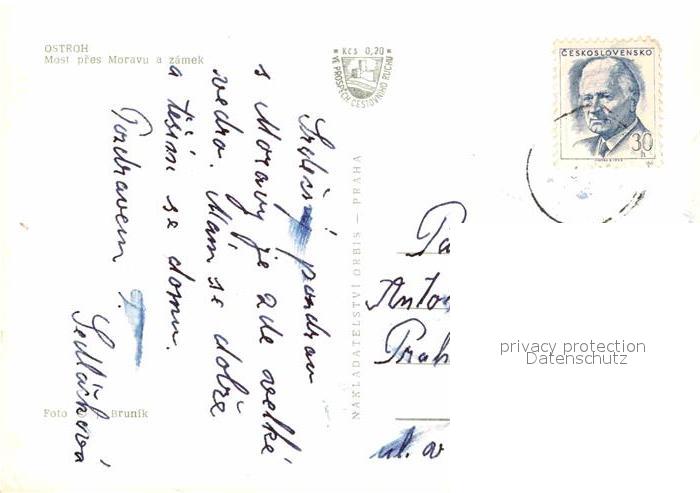 OSTROH
Most přes Moravu a zámek
Kčs 0,20
VE PROSPĚCH CESTOVNÍHO RUCHU
ČESKOSLOVENSKO
30 h
Srdečný pozdrav
s Moravy je zde velké
vedro. Mám se dobře
a těším se domu.
Pozdravem
Sedláčková
NAKLADATELSTVÍ ORBIS — PRAHA
Pa
Anto
Prah
ul. v
privacy protection
Datenschutz
Foto
Bruník